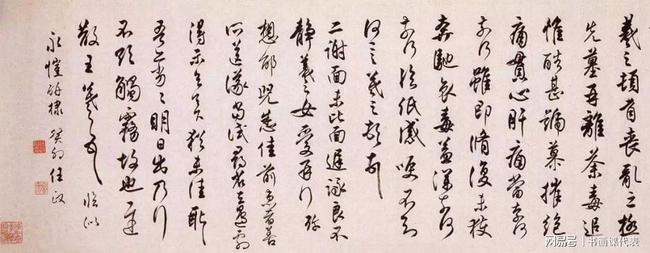 羲之頓首喪亂之極
先墓再離荼毒追
惟酷甚號慕摧絶
痛貫心肝痛當奈何
奈何雖即脩復未獲
奔馳哀毒益深奈何
奈何臨紙感哽不知
何言羲之頓首
二謝面未比面遲詠良不
靜羲之女愛再拜
想邵兒悉佳前患者善
所送議當試尋省左邊劇
得示知足下猶未佳耿
吾亦劣劣明日出乃行
不欲觸霧故也遲
散王羲之頓首 臨似
永愷 棣 癸卯任政
网易号 | 书画课代表